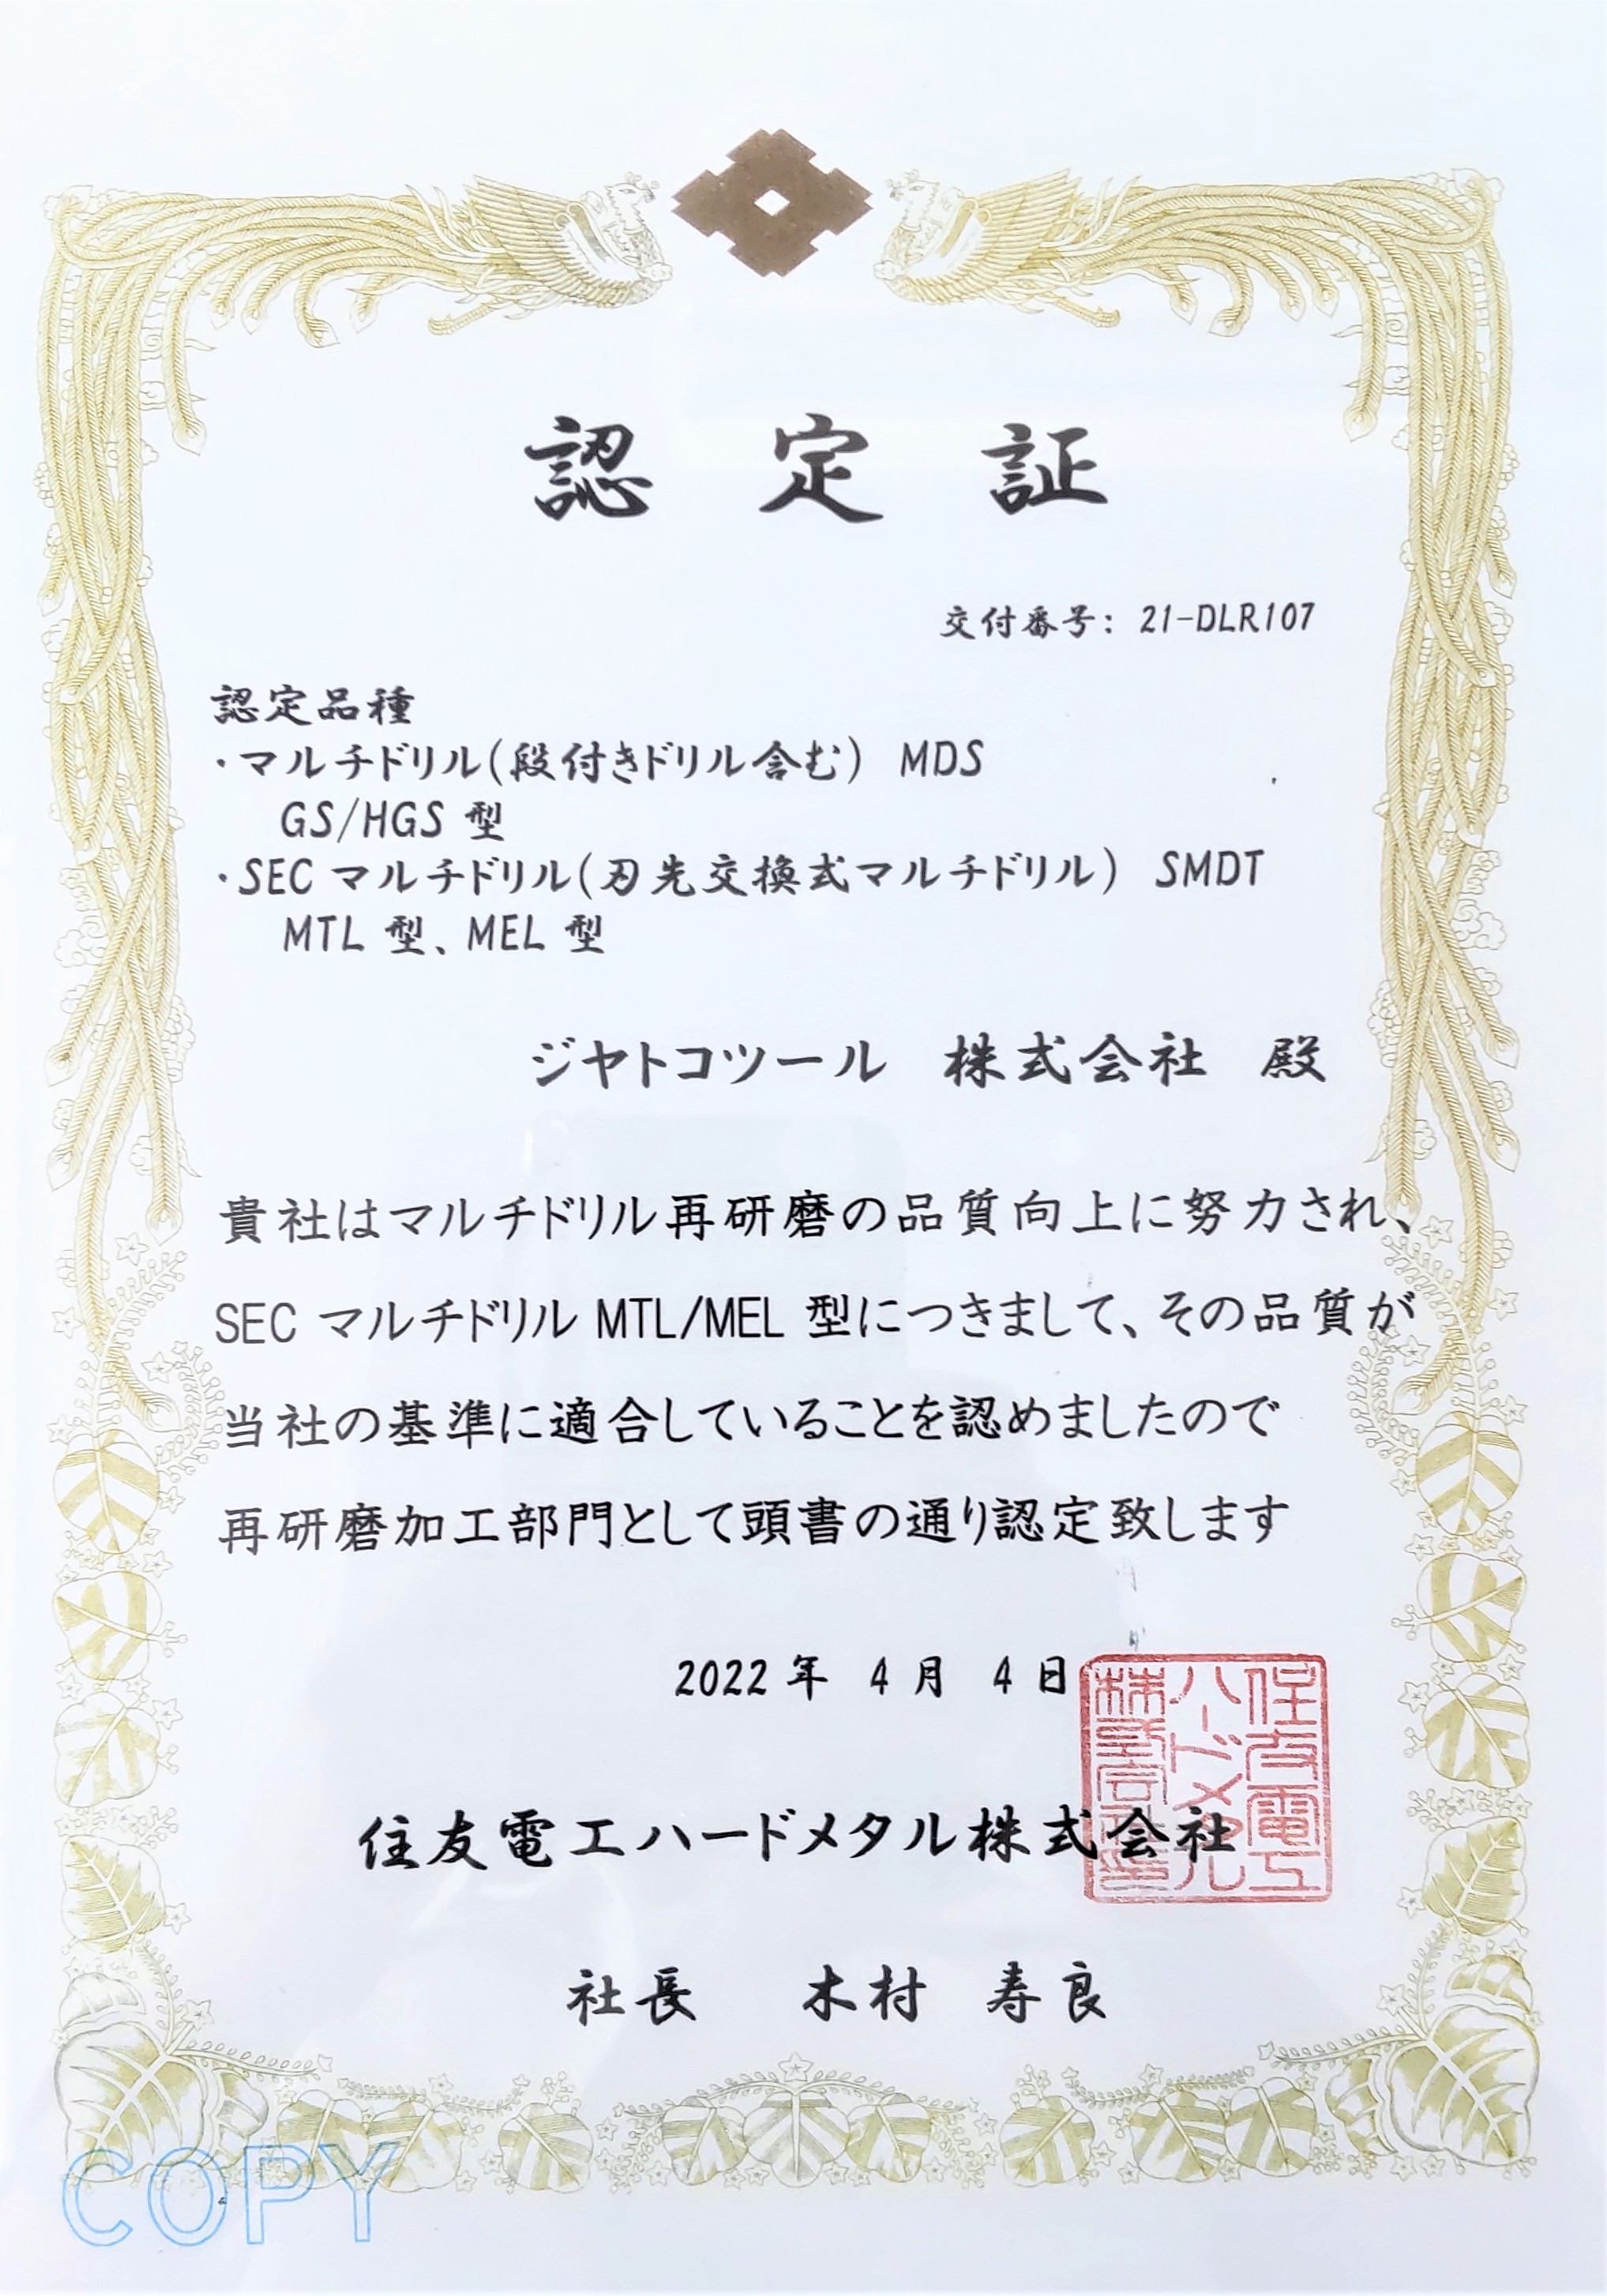 認定証
交付番号: 21-DLR107
認定品種
・マルチドリル(段付きドリル含む) MDS
GS/HGS 型
・SEC マルチドリル(刃先交換式マルチドリル) SMDT
MTL 型、MEL 型
ジヤトコツール 株式会社 殿
貴社はマルチドリル再研磨の品質向上に努力され、
SEC マルチドリル MTL/MEL 型につきまして、その品質が
当社の基準に適合していることを認めましたので
再研磨加工部門として頭書の通り認定致します
2022 年 4 月 4 日
住友電工ハードメタル株式会社
社長 木村 寿良
COPY